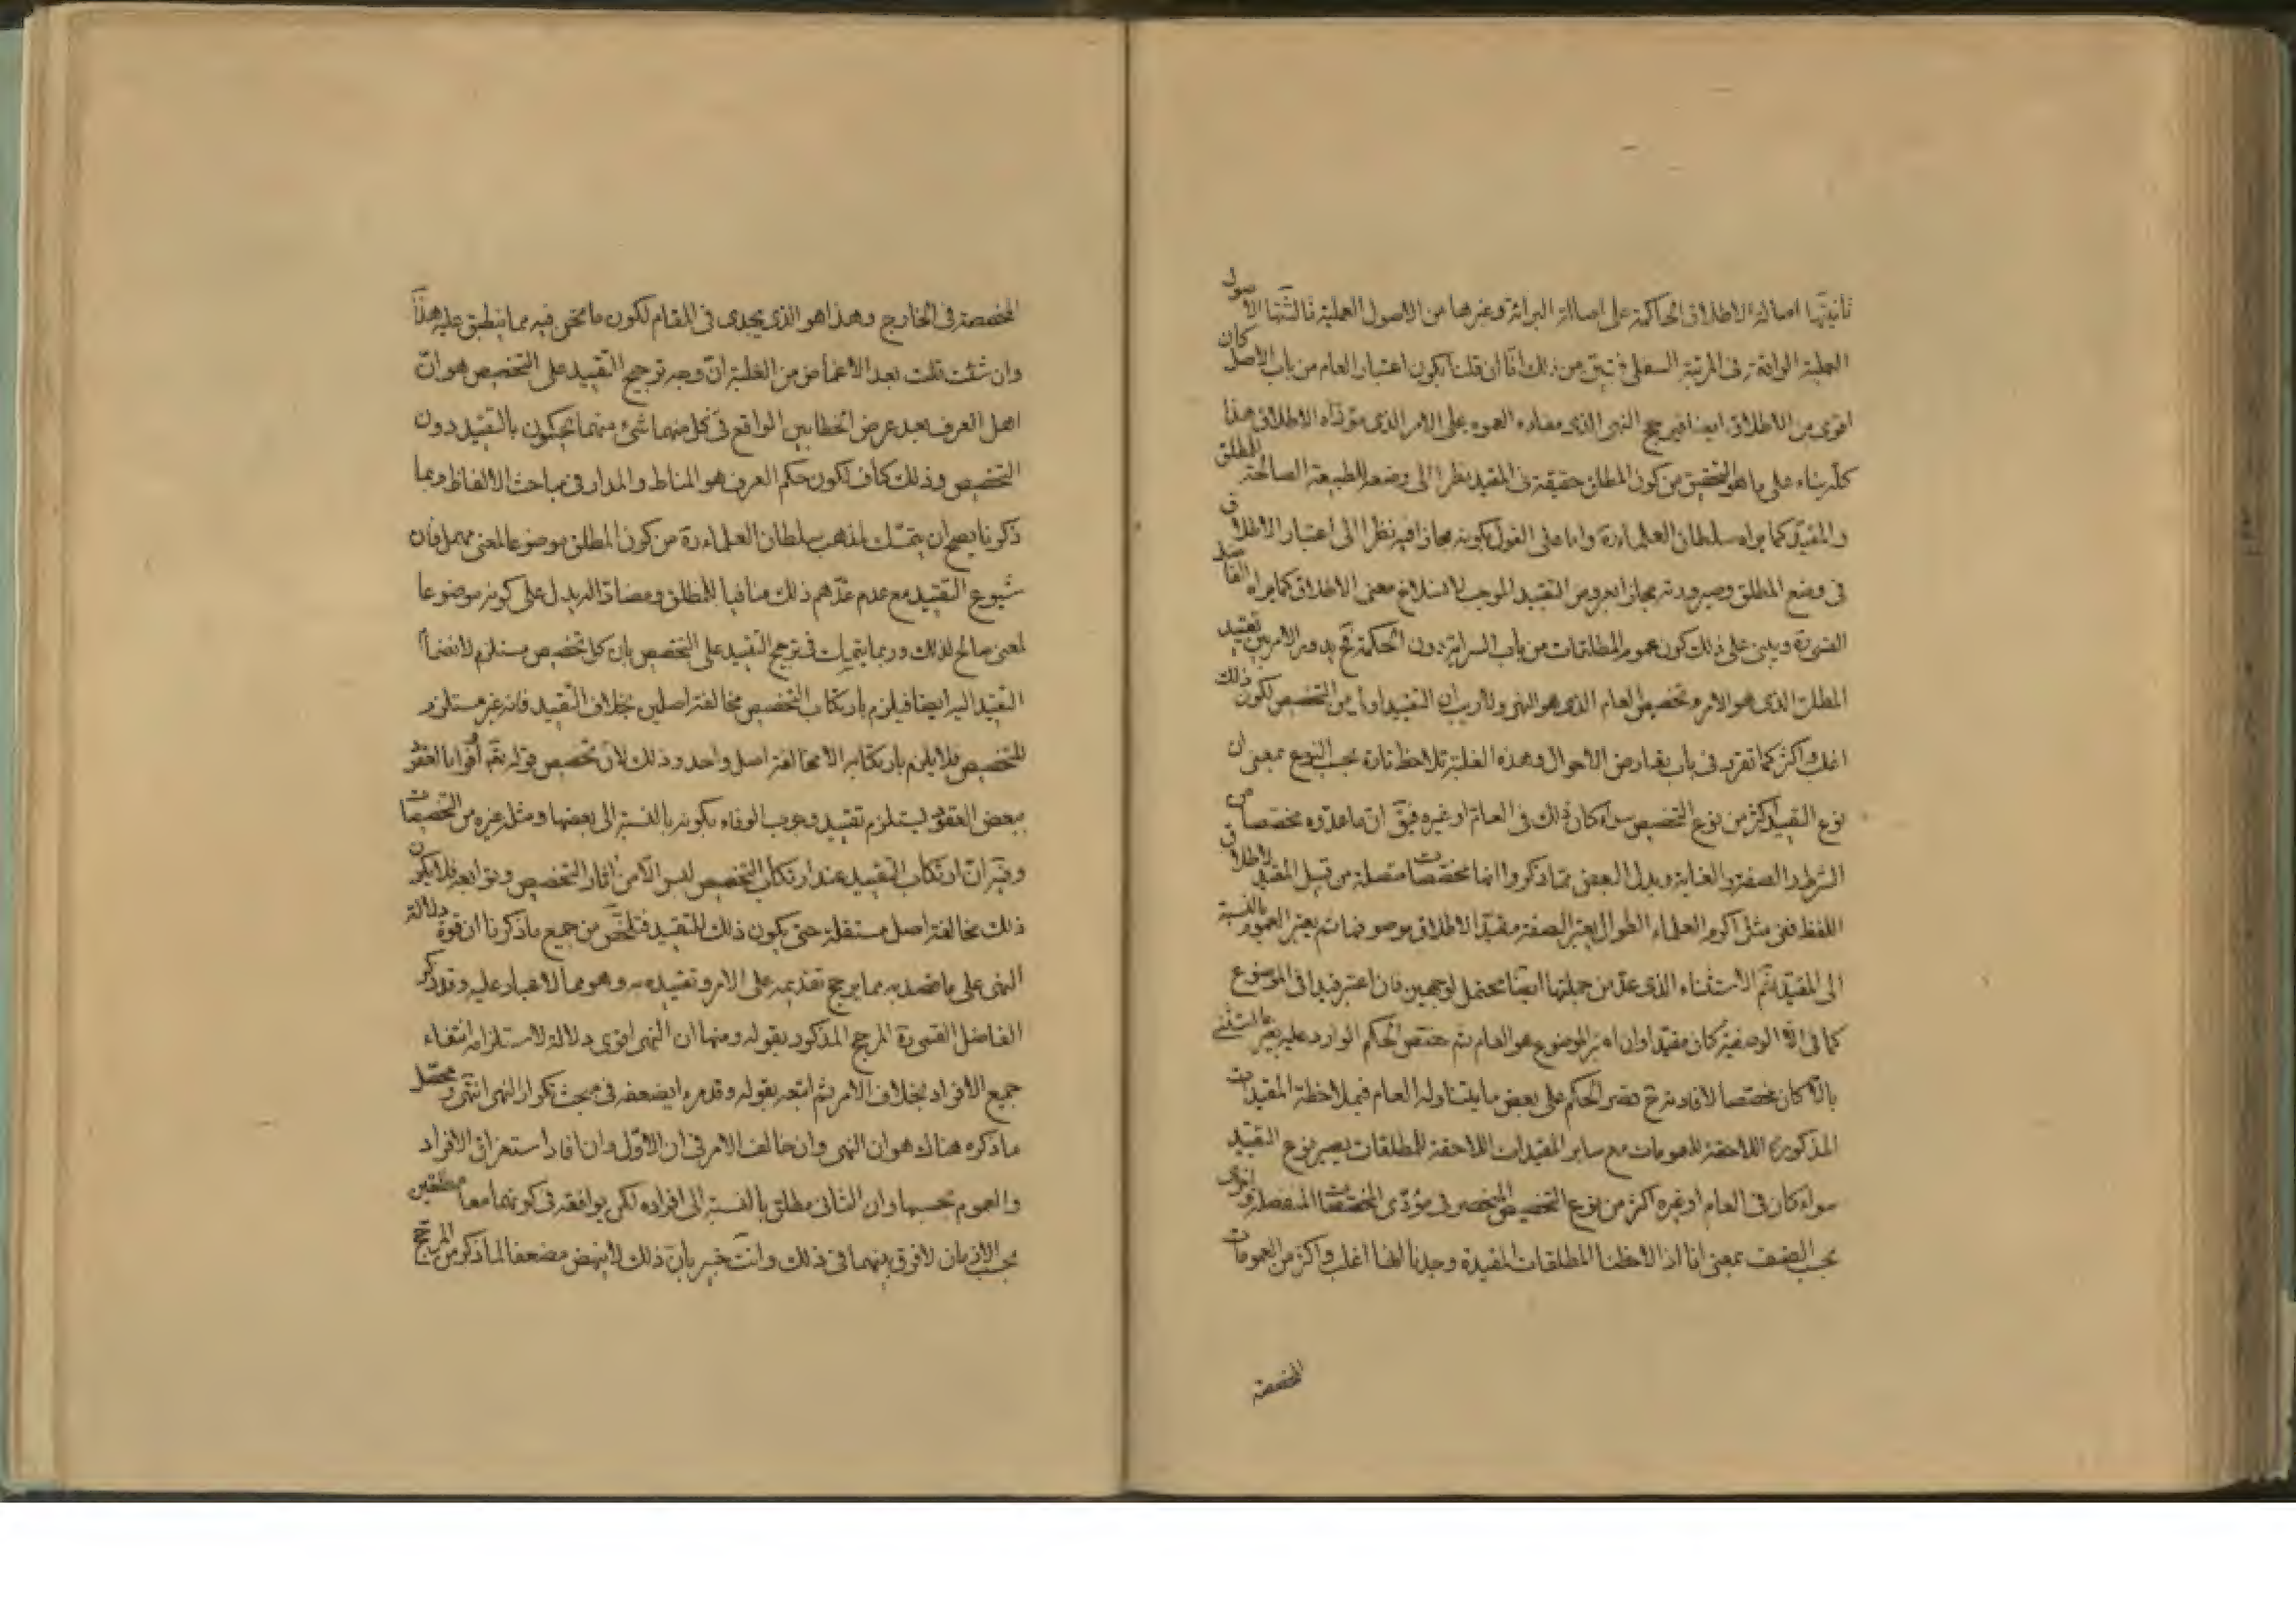 ثانيتها اصالة الاطلاق الحاكمة على اصالة البرائة وغيرها من الاصول العملية ثالثتها الاصول
العملية الواقعة فى المرتبة السفلى من ذلك انا ان قلنا بكون اعتبار العام من باب الاصل كان
اقوى من الاطلاق ايضا فيرجح النهى الذى مفاده العموم على الامر الذى مؤداه الاطلاق هذا
كله بناء على ما هو التحقيق من كون المطلق حقيقة فى المقيد نظرا الى وضعه للطبيعة الصالحة للمطلق
والمقيد كما يراه سلطان العلماء ره واما على القول بكونه مجازا فيه نظرا الى اعتبار الاطلاق
فى وضع المطلق وصيرورته مجازا بعروض التقييد الموجب لانسلاخ معنى الاطلاق كما يراه الفاضل
القمى ره ويبنى على ذلك كون عموم المطلقات من باب السراية دون الحكمة فح يدور الامر بين تقييد
المطلق الذى هو الامر وتخصيص العام الذى هو النهى ولا ريب ان التقييد اولى من التخصيص لكون ذلك
اغلب واكثر كما تقرر فى باب تعارض الاحوال وهذه الغلبة تلاحظ تارة بحسب النوع بمعنى ان
نوع التقييد اكثر من نوع التخصيص سواء كان ذلك فى العام او غيره فيق ان ما عدوه مخصصا من
الشرط والصفة والغاية وبدل البعض مما ذكروا انها مخصصات متصلة من قبيل المقيد لاطلاق
اللفظ ففى مثل اكرم العلماء الطوال يعتبر الصفة مقيدا لاطلاق موصوفها ثم يعتبر العموم بالنسبة
الى المقيد ثم الاستثناء الذى عد من جملتها ايضا محتمل لوجهين فان اعتبر قيدا فى الموضوع
كما فى الا الوصفية كان مقيدا وان اعتبر الموضوع هو العام ثم خصص الحكم الوارد عليه بغير المستثنى
بالا كان مخصصا لافادته ح قصر الحكم على بعض ما يتناوله العام فبملاحظة المقيدات
المذكورة اللاحقة للعمومات مع ساير المقيدات اللاحقة للمطلقات يصير نوع التقييد
سواء كان فى العام او غيره اكثر من نوع التخصيص المنحصر فى مؤدى المخصصات المنفصلة واخرى
بحسب الصنف بمعنى انا اذا لاحظنا المطلقات المقيدة وجدنا انها اغلب واكثر من العمومات
المخصصة
المخصصة فى الخارج وهذا هو الذى يجدى فى المقام لكون ما نحن فيه مما ينطبق عليه هذا
وان شئت قلت بعد الاغماض من الغلبة ان وجه ترجيح التقييد على التخصيص هو ان
اهل العرف بعد عرض الخطابين الواقع فى كل منهما شئ منهما يحكمون بالتقييد دون
التخصيص وذلك كاف لكون حكم العرف هو المناط والمدار فى مباحث الالفاظ وبما
ذكرنا يصح ان يتمسك لمذهب سلطان العلماء ره من كون المطلق موضوعا لمعنى مهمل فان
شيوع التقييد مع عدم عدهم ذلك منافيا للمطلق ومضادا له يدل على كونه موضوعا
لمعنى صالح لذلك وربما يتمسك فى ترجيح التقييد على التخصيص بان كل تخصيص مستلزم لانضمام
التقييد اليه ايضا فيلزم بارتكاب التخصيص مخالفة اصلين بخلاف التقييد فانه غير مستلزم
للتخصيص فلا يلزم بارتكابه الا مخالفة اصل واحد وذلك لان تخصيص قوله تعه اوفوا بالعقود
ببعض العقود يستلزم تقييد وجوب الوفاء بكونه بالنسبة الى بعضها ومثله غيره من التخصيصات
وفيه ان ارتكاب التقييد عند ارتكاب التخصيص ليس الا من اثار التخصيص وتوابعه فلا يكون
ذلك مخالفة اصل مستقلة حتى يكون ذلك للتقييد فتلخص من جميع ما ذكرنا ان قوة دلالة
النهى على ما قصد به مما يرجح تقديمه على الامر وتقييده به وهو مما لا غبار عليه وقد ذكر
الفاضل القمى ره المرجح المذكور بقوله ومنها ان النهى اقوى دلالة لاستلزامه انتفاء
جميع الافراد بخلاف الامر ثم اتبعه بقوله وقد مر ما يضعفه فى مبحث تكرار النهى انتهى ومحصل
ما ذكره هناك هو ان النهى وان خالف الامر فى ان الاول وان افاد استغراق الافراد
والعموم بحسبها وان الثانى مطلق بالنسبة الى افراده لكن يوافقه فى كونهما معا مطلقين
بحسب الازمان لا فرق بينهما فى ذلك وانت خبير بان ذلك لا ينهض مضعفا لما ذكر من المرجح